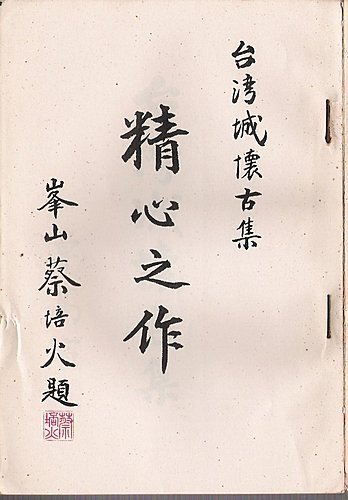 台湾城懷古集
精心之作
峯山蔡培火題
蔡培火